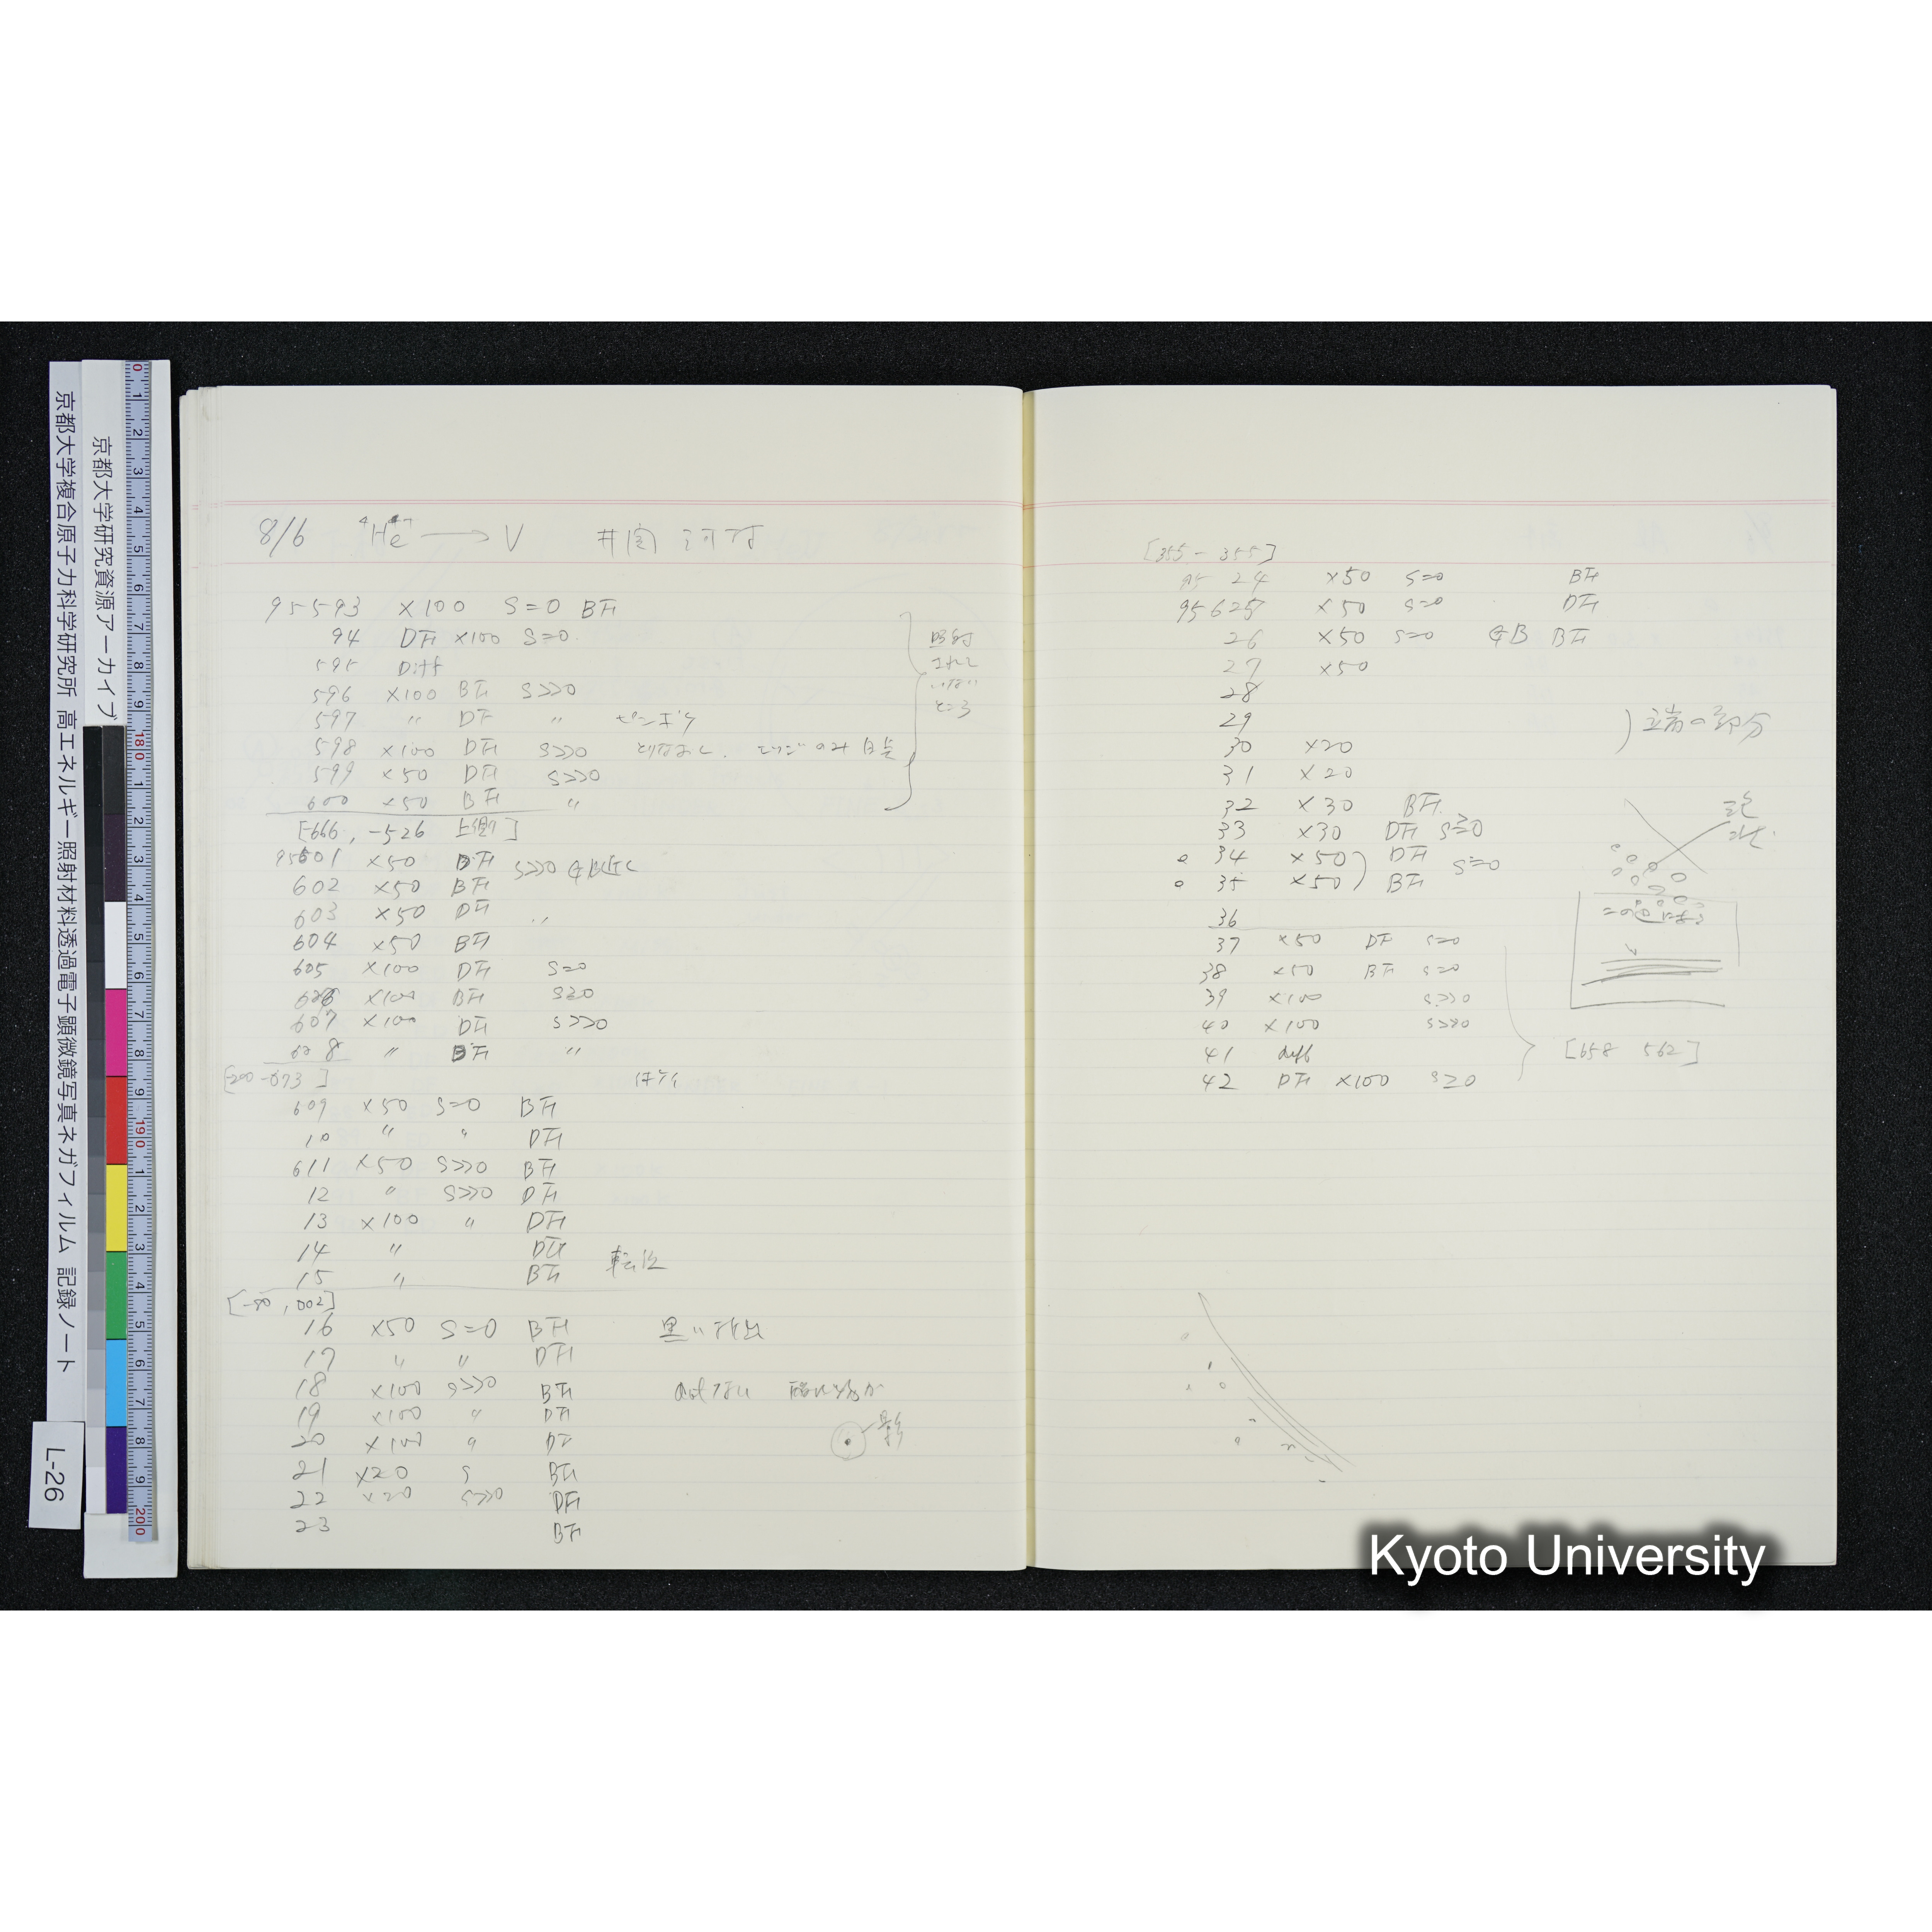 京都大学研究資源アーカイブ
京都大学複合原子力科学研究所 高エネルギー照射材料透過電子顕微鏡写真ネガフィルム 記録ノート
L-26
8/6 ⁴He⁺ → V 井関 河村
95-593 ×100 S=0 BFI
94 DFI ×100 S=0
595 Diff
596 ×100 BFI S>>0
597 〃 DF 〃 ピンボケ
598 ×100 DFI S>>0 とりなおし. エッジのみ 白点
599 ×50 DFI S>>0
600 ×50 BFI 〃
照射
されて
いない
ところ
[-666, -526 上側]
95601 ×50 DFI S>>0 GB
602 ×50 BFI
603 ×50 DFI 〃
604 ×50 BFI
605 ×100 DFI S=0
606 ×100 BFI S≥0
607 ×100 DFI S>>0
608 〃 BFI 〃
[-200 -073]
609 ×50 S=0 BFI
10 〃 〃 DFI
611 ×50 S>>0 BFI
12 〃 S>>0 DFI
13 ×100 〃 DFI
14 〃 DFI
15 〃 BFI 転位
[-80, 002]
16 ×50 S=0 BFI 黒い
17 〃 〃 DFI
18 ×100 S>>0 BFI
19 ×100 〃 DFI
20 ×100 〃 DF
影
21 ×20 S BFI
22 ×20 S>>0 DFI
23 BFI
[355 - 355]
95 24 ×50 S=0 BFI
95625 ×50 S=0 DFI
26 ×50 S=0 GB BFI
27 ×50
28
29
端の部分
30 ×20
31 ×20
32 ×30 BFI
33 ×30 DFI S≥0
34 ×50 DFI
35 ×50 BFI S=0
36
37 ×50 DF S=0
38 ×50 BFI S=0
39 ×100 S>>0
40 ×100 S>>0
41 diff
42 DFI ×100 S≥0
[658 562]
Kyoto University